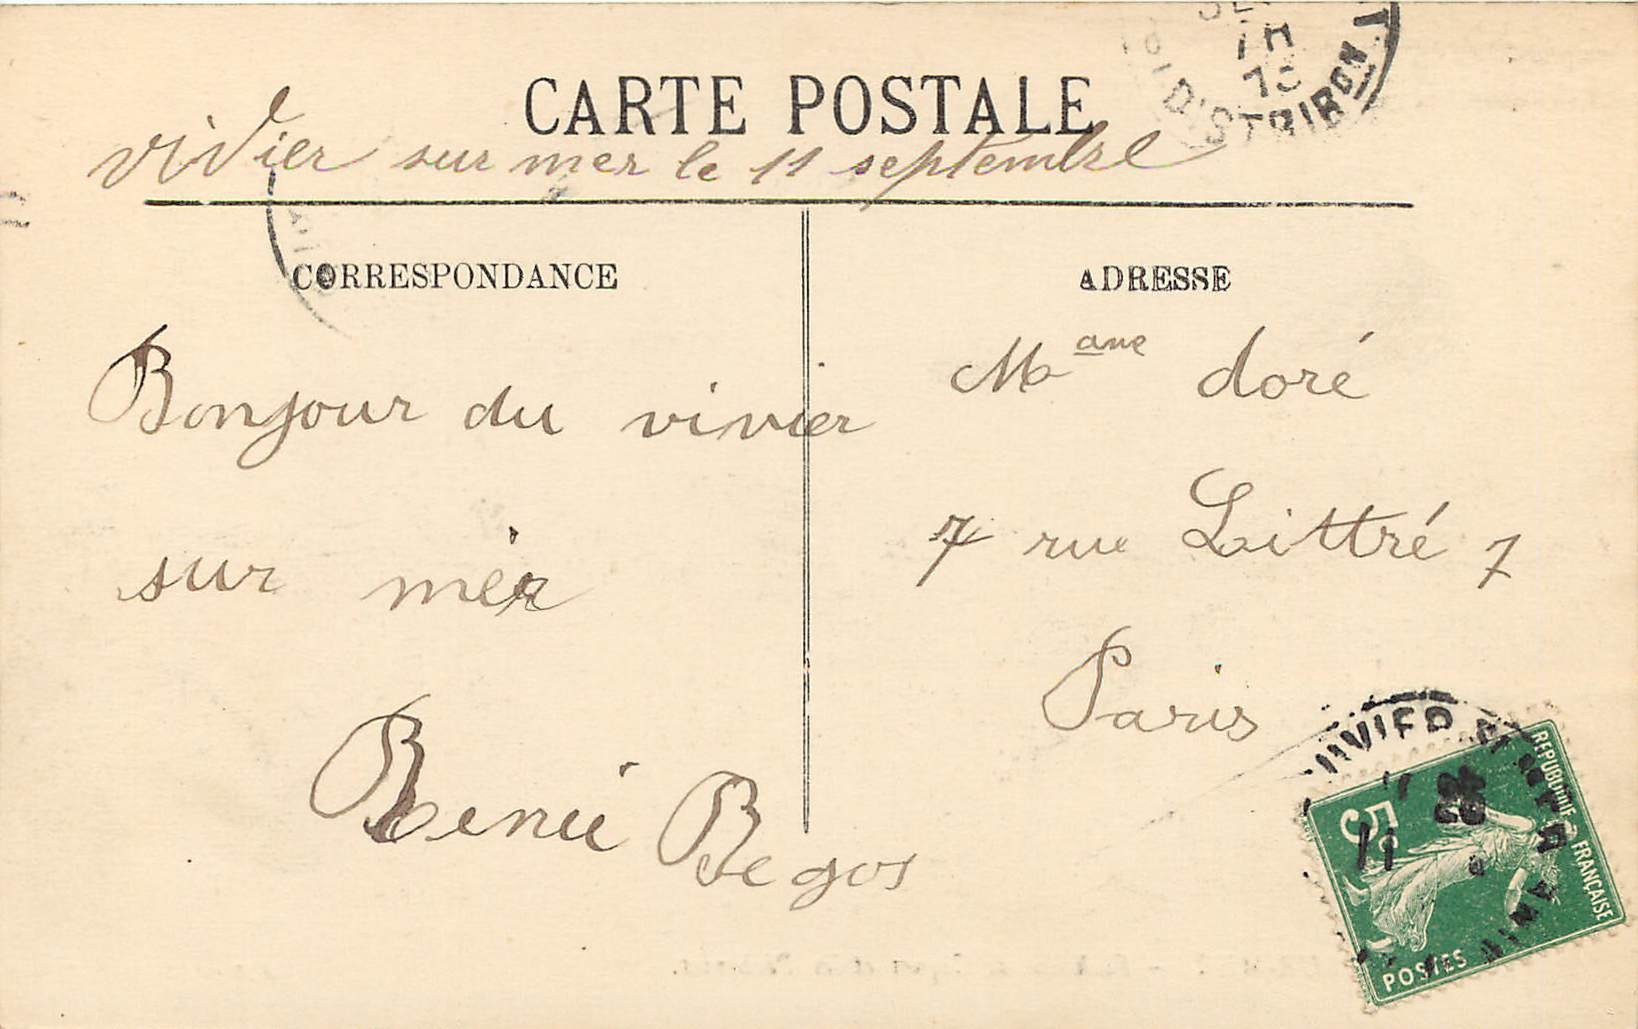 CARTE POSTALE
vivier sur mer le 11 septembre
CORRESPONDANCE
Bonjour du vivier
sur mer
Begos
ADRESSE
Mame doré
7 rue Littré 7
Paris
DISTRIBON
VIVIER S MER
11
RÉPUBLIQUE FRANÇAISE
5c
POSTES